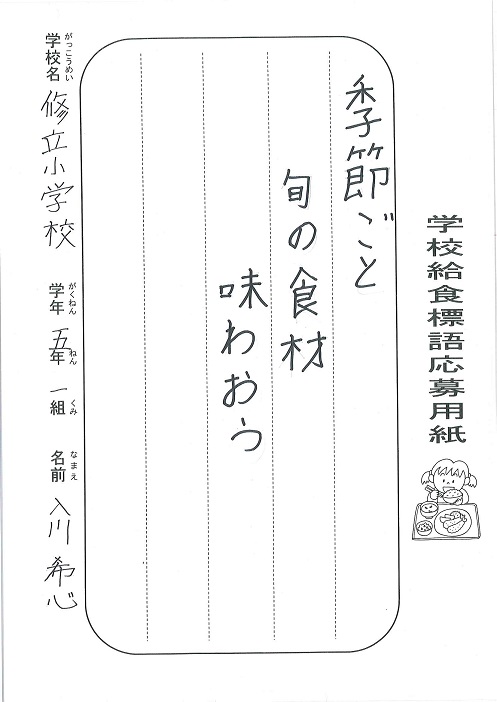 学校給食標語応募用紙
季節ごと
旬の食材
味わおう
学校名 修立小学校 学年 五年 一組 名前 入川 希心
がっこうめい がくねん ねん くみ なまえ